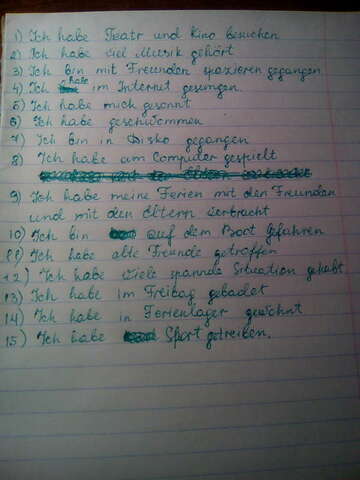 1) Ich habe Teatr und Kino besuchen
2) Ich habe viel Musik gehört
3) Ich bin mit Freunden spazieren gegangen
4) Ich habe im Internet gesungen.
5) Ich habe mich gesonnt
6) Ich habe geschwommen
7) Ich bin in Disko gegangen
8) Ich habe am Computer gespielt
9) Ich habe meine Ferien mit den Freunden
und mit den Eltern verbracht
10) Ich bin auf dem Boot gefahren
11) Ich habe alte Freunde getroffen
12) Ich habe viele spannale Situation gehabt
13) Ich habe im Freibag gebadet
14) Ich habe in Ferienlager gewohnt
15) Ich habe Sport getreiben.